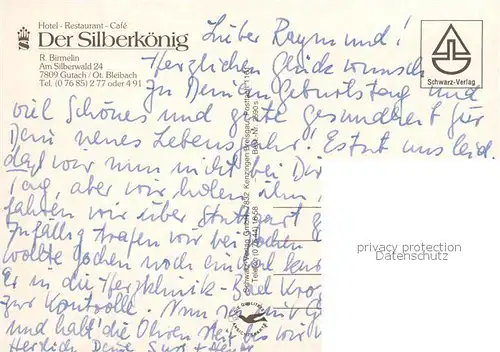 Hotel - Restaurant - Café
Der Silberkönig
R. Birmelin
Am Silberwald 24
7809 Gutach / Ot. Bleibach
Tel. (0 76 85) 2 77 oder 4 91
Schwarz-Verlag
Lieber Raymund!
Herzlichen Glückwunsch
Zu Deinem Geburtstag und
viel Schönes und gute Gesundheit für
Dein neues Lebensjahr. Es tut uns leid.
daß wir nun nicht bei Dir
Tag, aber wir holen ihn
fahren wir über Stuttgart
Zufällig trafen wir bei
wollte Jochen noch einmal kurz
Er in die Herzklinik - Bad Kroz
zur Kontrolle. Nun
und halt' die Ohren steif bis wir
Herzlich Deine
Schwarz-Verlag GmbH, 7832 Kenzingen/Breisgau, Postfach 1167
Telefon (0 76 44) 16 58
Best.-Nr.
privacy protection
Datenschutz